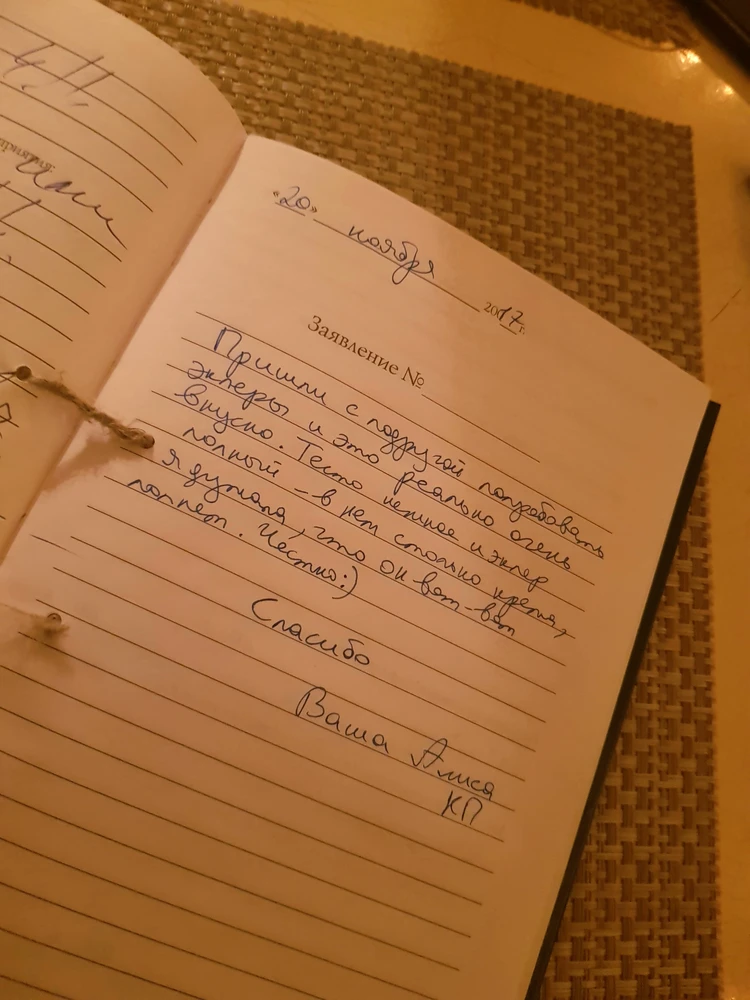 приятия:
«20» ноября 2017г.
Заявление №
Пришли с подругой попробовать
эклеры и это реально очень
вкусно. Тесто нежное и эклер
полный - в нем столько крема,
я думала, что он вот-вот
лопнет. Честно:)
Спасибо
Ваша Алиса
КП